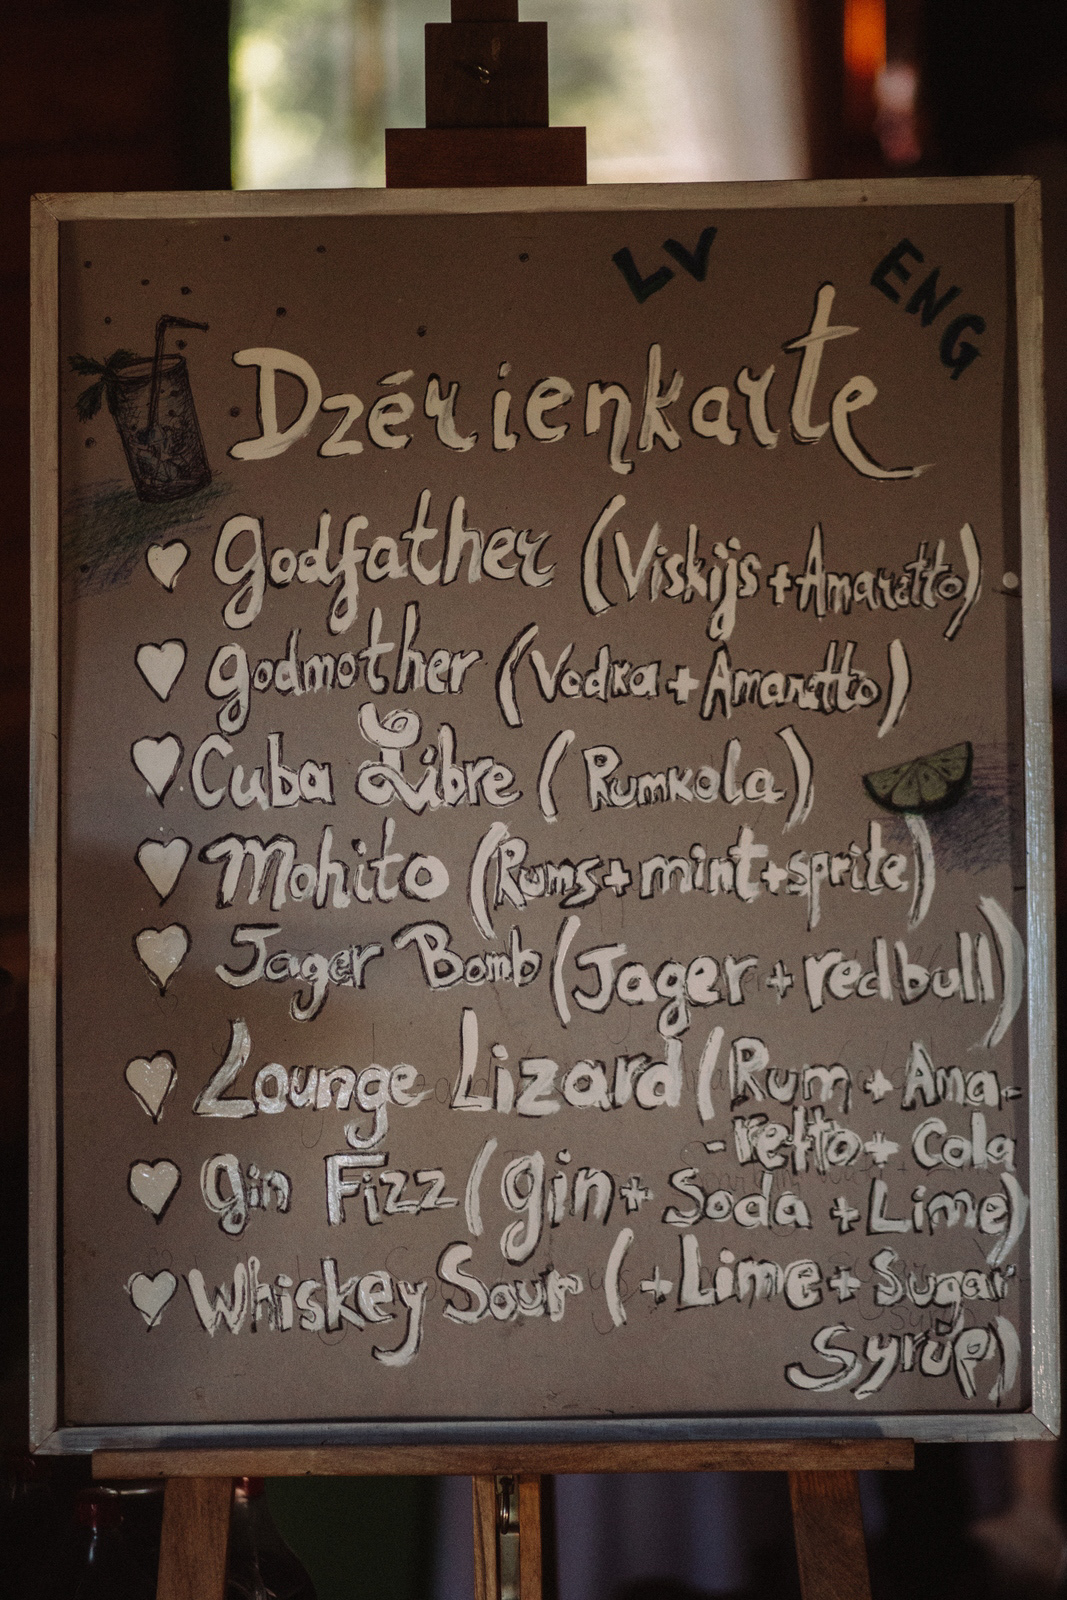 LV ENG
Dzérienkarte
Godfather (Viskijs + Amaretto)
Godmother (Vodka + Amaretto)
Cuba Libre (Rumkola)
Mohito (Rums + mint + sprite)
Jager Bomb (Jager + redbull)
Lounge Lizard (Rum + Ama-
-retto + Cola
Gin Fizz (gin + Soda + Lime)
Whiskey Sour ( + Lime + Sugar
Syrup)